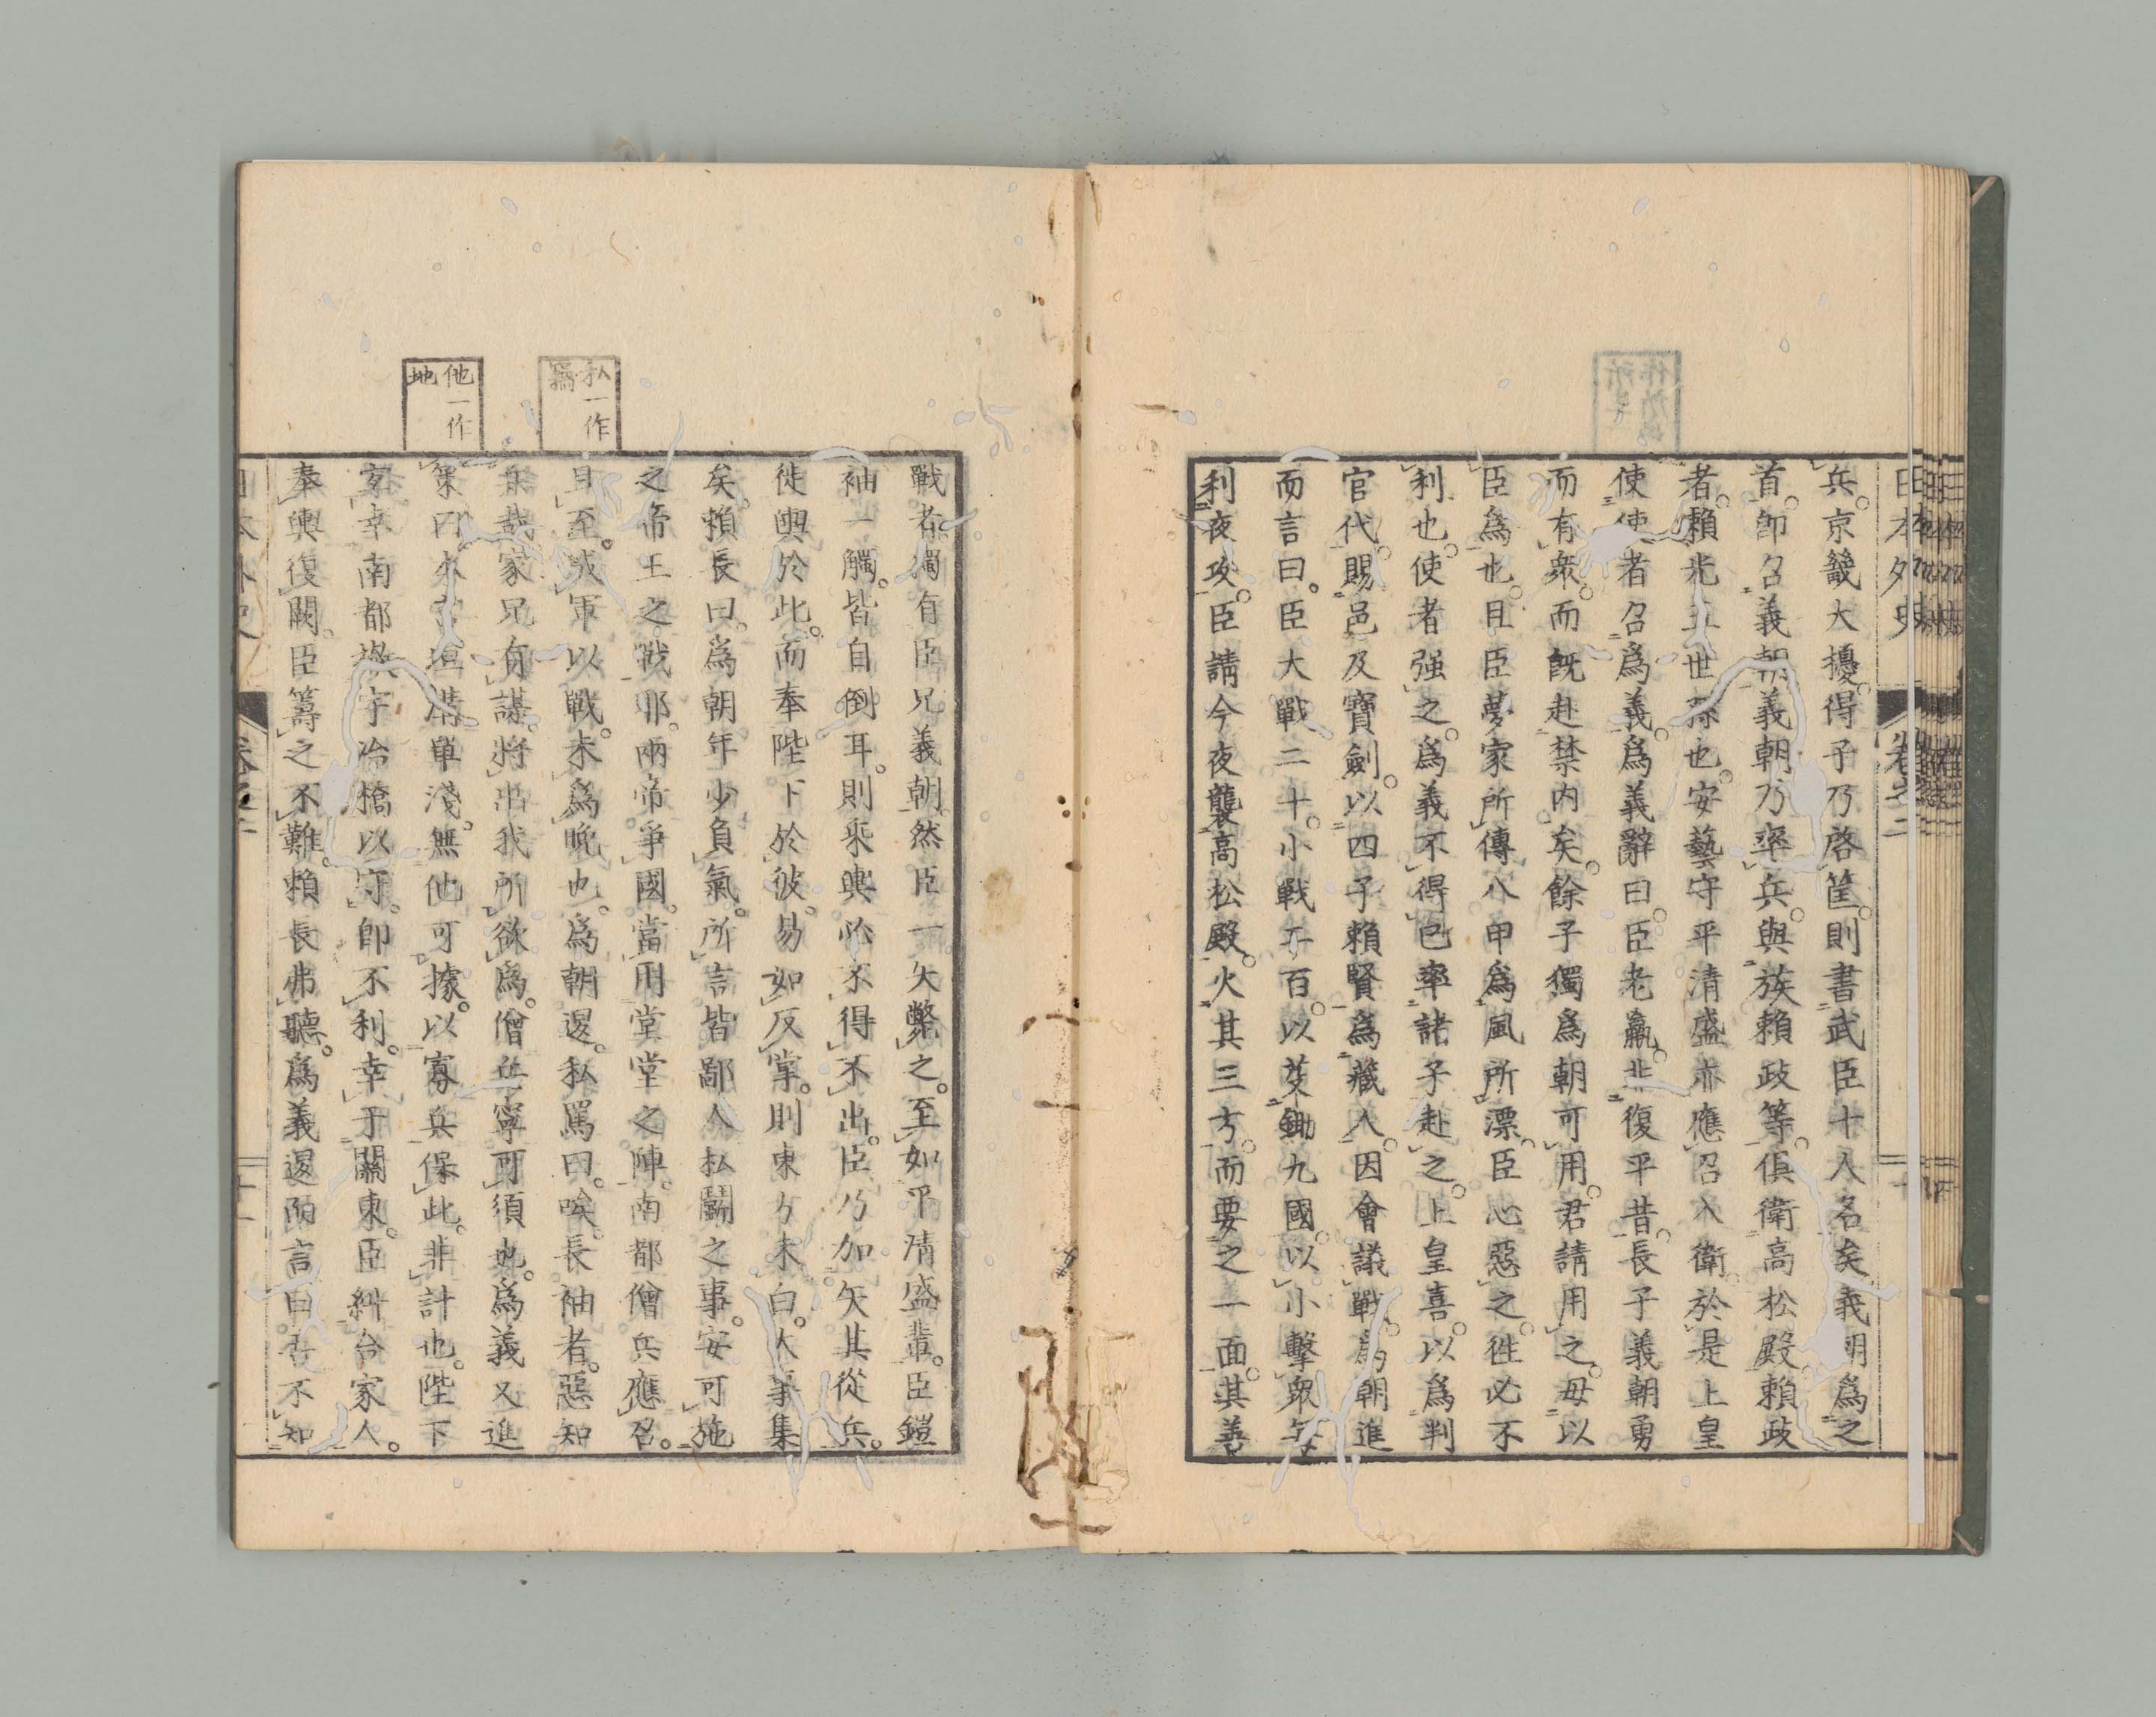 日本外史
卷之二
兵。京畿大擾。得子乃啓筐。則書武臣十人名矣。義朝爲之
首。卽召義朝。義朝乃率兵。與族賴政等。俱衛高松殿。賴政
者。賴光五世孫也。安藝守平淸盛亦應召入衛。於是上皇
使使者召爲義。爲義辭曰。臣老羸。非復平昔。長子義朝勇
而有衆。而旣赴禁內矣。餘子獨爲朝可用。君請用之。毋以
臣爲也。且臣夢家所傳八甲爲風所漂。臣心惡之。往必不
利也。使者强之。爲義不得已。率諸子赴之。上皇喜。以爲判
官代。賜邑及寶劍。以四子賴賢爲藏人。因會議戰。爲朝進
而言曰。臣大戰二十。小戰五百。以芟鋤九國。以小擊衆每
利夜攻。臣請今夜襲高松殿。火其三方。而要之一面。其善
戰者。獨有臣兄義朝。然臣一矢斃之。至如平淸盛輩。臣鎧
袖一觸。皆自倒耳。則乘輿必不得不出。臣乃加矢其從兵。
徙輿於此。而奉陛下於彼。易如反掌。則東方未白。大事集
矣。賴長曰。爲朝年少負氣。所言皆鄙人私鬪之事。安可施
之帝王之戰耶。兩帝爭國。當用堂堂之陣。南都僧兵應召。
且至。成軍以戰。未爲晚也。爲朝退。私罵曰。唉。長袖者。惡知
兵哉。家兄有謀。將出我所欲爲。僧兵寧可須也。爲義又進
策曰。此宮垣溝單淺。無他可據。以寡兵保此。非計也。陛下
宜幸南都。撤宇治橋以守。卽不利。幸于關東。臣糾合家人。
奉輿復闕。臣籌之不難。賴長弗聽。爲義退而言曰。吾不知
私一作
爲
他一作
地